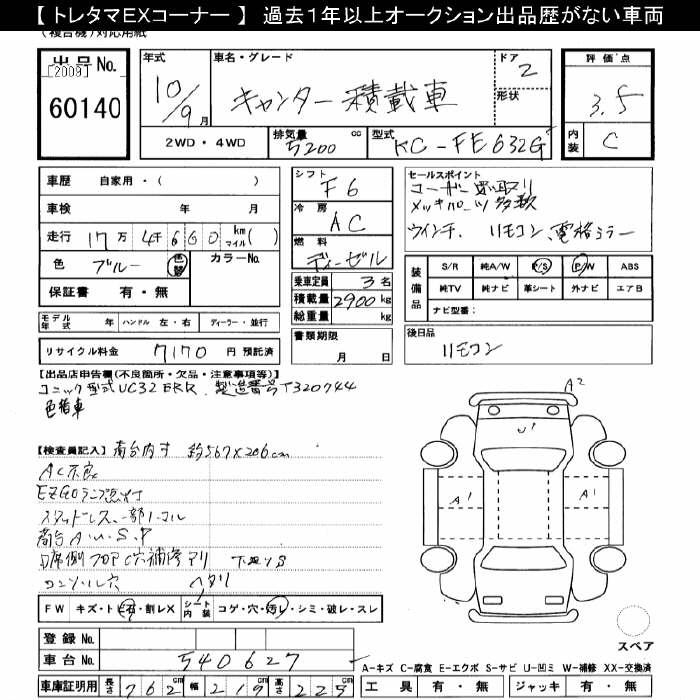 【 トレタマEXコーナー 】 過去1年以上オークション出品歴がない車両
(複合機)対応用紙
出品No. [2009] 60140
年式 10/9月
車名・グレード キャンター 積載車
ドア 2
形状
2WD・4WD
排気量 5200 cc
型式 KC-FE632G
評価点 3.5
内装 C
車歴 自家用・( )
車検 年 月
走行 17万4千660 km マイル( )
色 ブルー 色替 カラーNo.
保証書 有・無
シフト F6
冷房 AC
燃料 ディーゼル
乗車定員 3名
積載量 2900kg
総重量 kg
セールスポイント
メッキパーツ多数
ウインチ、リモコン、電格ミラー
装備品 S/R 純A/W P/S P/W ABS
純TV 純ナビ 革シート 外ナビ エアB
ナビ型番:
モデル年式 年 ハンドル 左・右 ディーラー・並行
リサイクル料金 7170 円 預託済
書類期限 月 日
後日品 リモコン
【出品店申告欄(不良箇所・欠品・注意事項等)】
ユニック型式UC32ERR、製造番号T320744
色替車
【検査員記入】荷台内寸 約567×206cm
AC不良
EZGOランプ点灯
スタッドレス、一部ノーマル
荷台A.U.S.P
D席側フロアC穴補修アリ 下廻りS
コンソール穴 ヘタリ
FW キズ・トビ石・割レX シート内装 コゲ・穴・汚レ・シミ・破レ・スレ
登録No.
車台No. 540627
車庫証明用 長さ 762cm 幅 219cm 高さ 225cm
A2
U1
A1
A1
スペア
A-キズ C-腐食 E-エクボ S-サビ U-凹ミ W-補修 XX-交換済
工具 有・無 ジャッキ 有・無